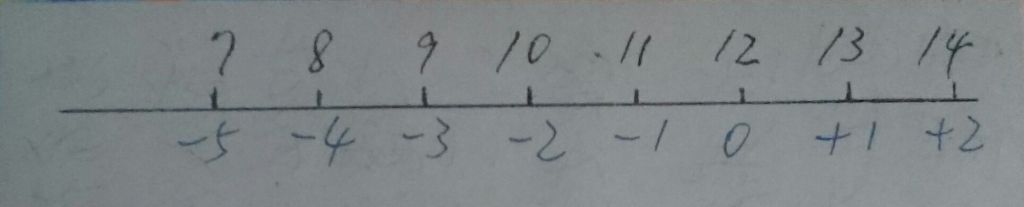 7 8 9 10 11 12 13 14
-5 -4 -3 -2 -1 0 +1 +2